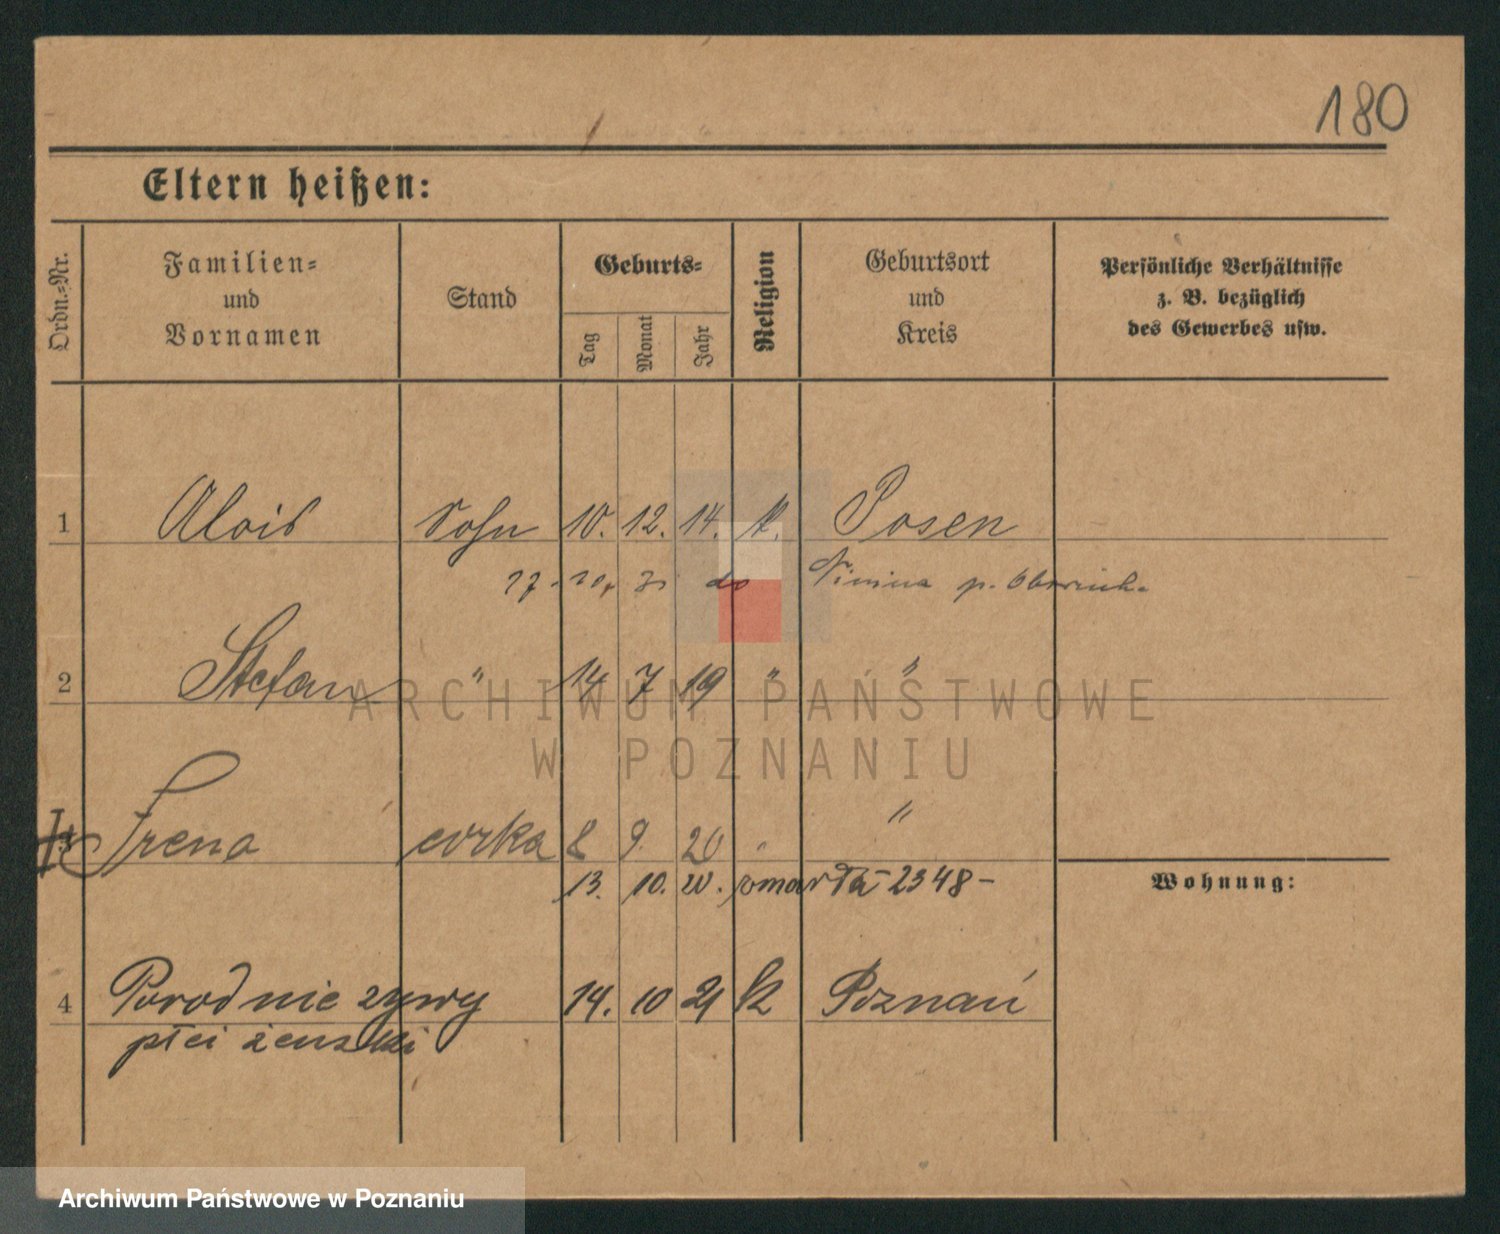 180
Eltern heißen:
Ordn.-Nr.
Familien-
und
Vornamen
Stand
Geburts-
Tag
Monat
Jahr
Religion
Geburtsort
und
Kreis
Persönliche Verhältnisse
z. B. bezüglich
des Gewerbes usw.
1 Alois Sohn 10. 12. 14. k. Posen
p.
2 Stefan " 14 7 19 " "
ARCHIWUM PAŃSTWOWE
W POZNANIU
3 Irena corka 8 9. 20 " "
13. 10. 20. zmarła 2348 -
Wohnung:
4 Porod nie zywy 14. 10 21 k Poznań
płci żenski
Archiwum Państwowe w Poznaniu